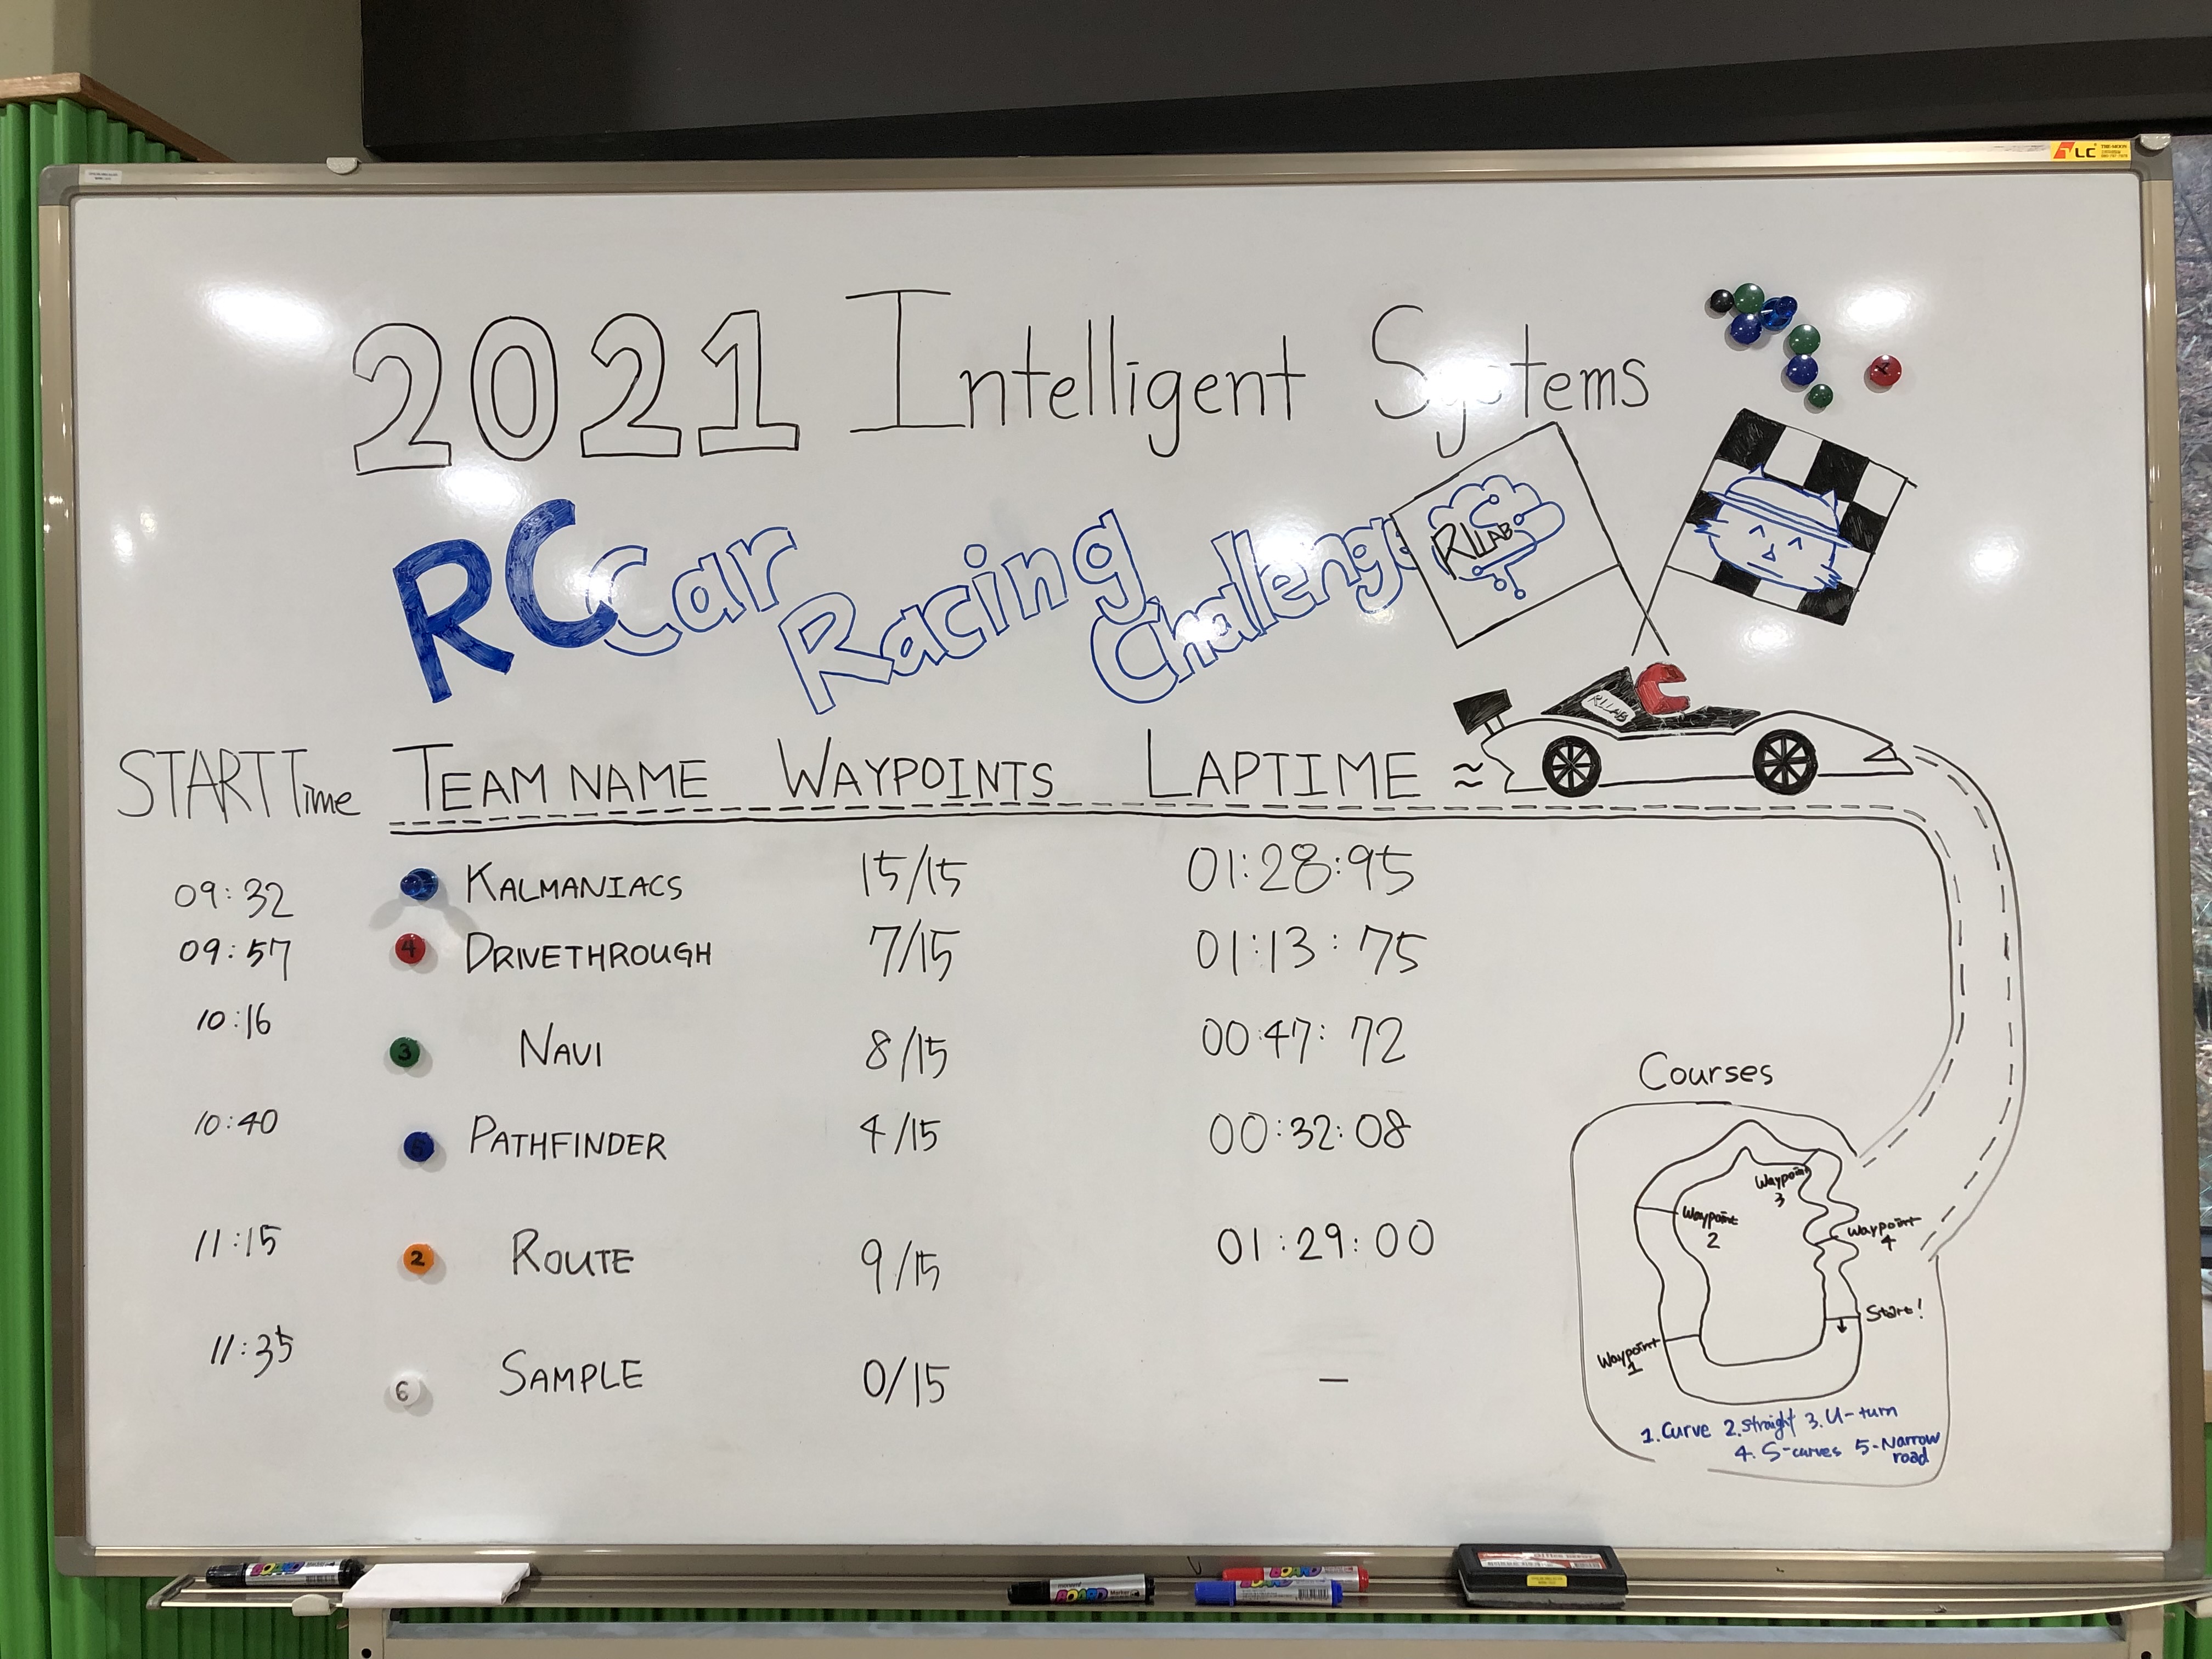 LC
2021 Intelligent Systems
RC Car Racing Challenge
RLLAB
RLLAB
START Time TEAM NAME WAYPOINTS LAPTIME
09:32 KALMANIACS 15/15 01:28:95
09:57 4 DRIVETHROUGH 7/15 01:13:75
10:16 3 NAVI 8/15 00:47:72
10:40 5 PATHFINDER 4/15 00:32:08
11:15 2 ROUTE 9/15 01:29:00
11:35 6 SAMPLE 0/15 -
Courses
Waypoint 3
Waypoint 2
Waypoint 4
Start!
Waypoint 1
1. Curve 2. straight 3. U-turn
4. S-curves 5-Narrow road
BOARD
BOARD Marker
BOARD
BOARD